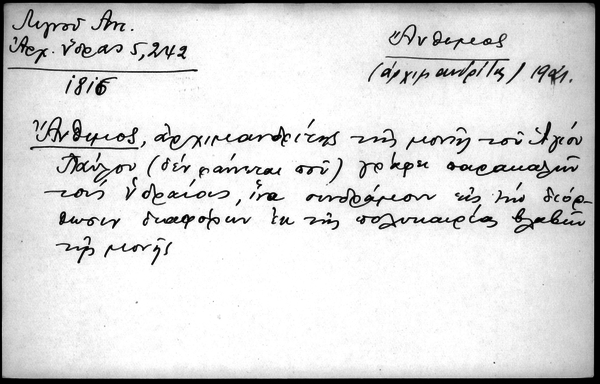 Λιγνοῦ Ἀντ.
Ἀρχ. Ὕδρας 5, 242
1816
Ἄνθιμος
(ἀρχιμανδρίτης) 1921.
Ἄνθιμος, ἀρχιμανδρίτης τῆς μονῆς τοῦ Ἁγίου
Παύλου (δὲν φαίνεται ποῦ) γράφει παρακαλῶν
τοὺς Ὑδραίους, ἵνα συνδράμωσιν εἰς τὴν διόρ-
θωσιν διαφόρων ἐκ τῆς πολυκαιρίας βλαβῶν
τῆς μονῆς